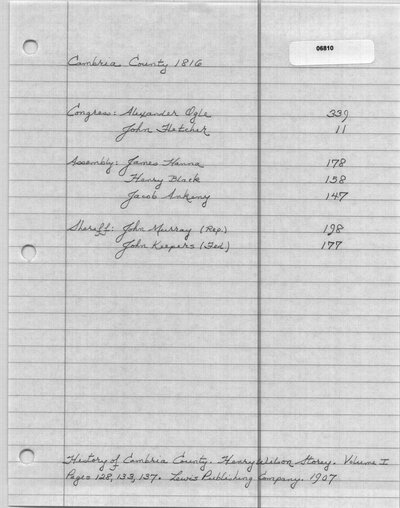 06810
Cambria County 1816
Congress: Alexander Ogle 339
John Fletcher 11
Assembly: James Hanna 178
Henry Black 158
Jacob Ankeny 147
Sheriff: John Murray (Rep.) 198
John Keepers (Fed) 177
History of Cambria County. Henry Wilson Storey. Volume I
Pages 128, 133, 137. Lewis Publishing Company. 1907